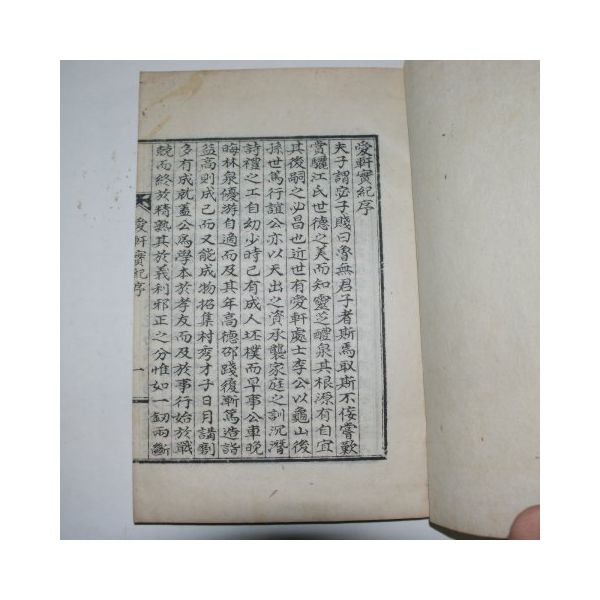 愛軒實紀序
夫子謂宓子賤曰魯無君子者斯焉取斯不佞嘗歎
賞驪江氏世德之美而知靈芝醴泉其根源有自宜
其後嗣之必昌也近世有愛軒處士李公以龜山後
孫世篤行誼公亦以天出之資承襲家庭之訓沉潛
詩禮之工自幼少時已有成人坯樸而早事公車晚
晦林泉優游自適而及其年高德邵踐復斬篤造詣
益高則成己而又能成物招集村秀才子日月講劘
多有成就盖公爲學本於孝友而及於事行始於戰
兢而終於精熟其於義利邪正之分惟如一釖兩斷
愛軒實紀序
一